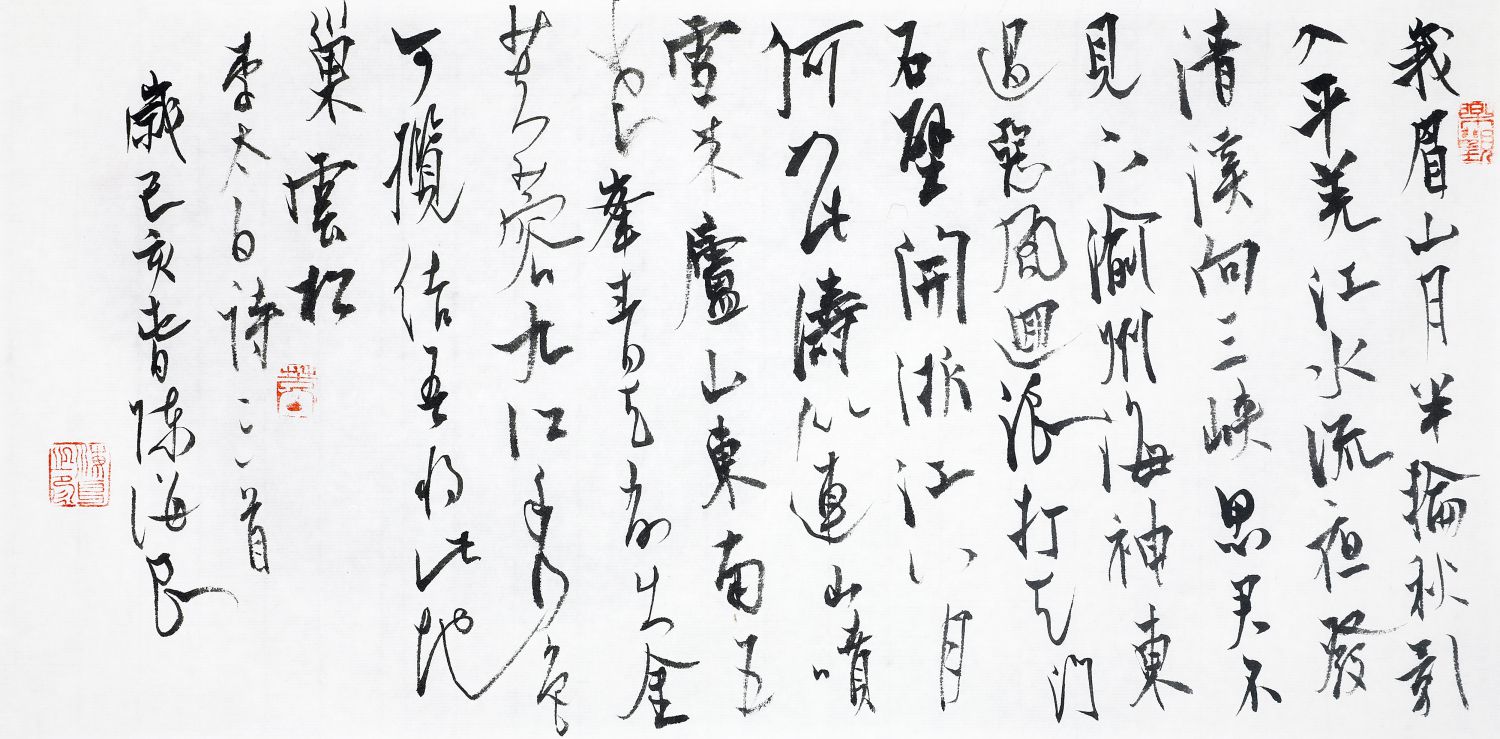 峩眉山月半輪秋影
入平羌江水流夜發
清溪向三峽思君不
見下渝州海神東
過惡風迴浪打天門
石壁開浙江八月
何如此濤似連山噴
雪来廬山東南五
老峯青天削出金
芙蓉九江秀色
可攬結吾将此地
巢雲松
李太白詩三首
歲己亥春陳海良